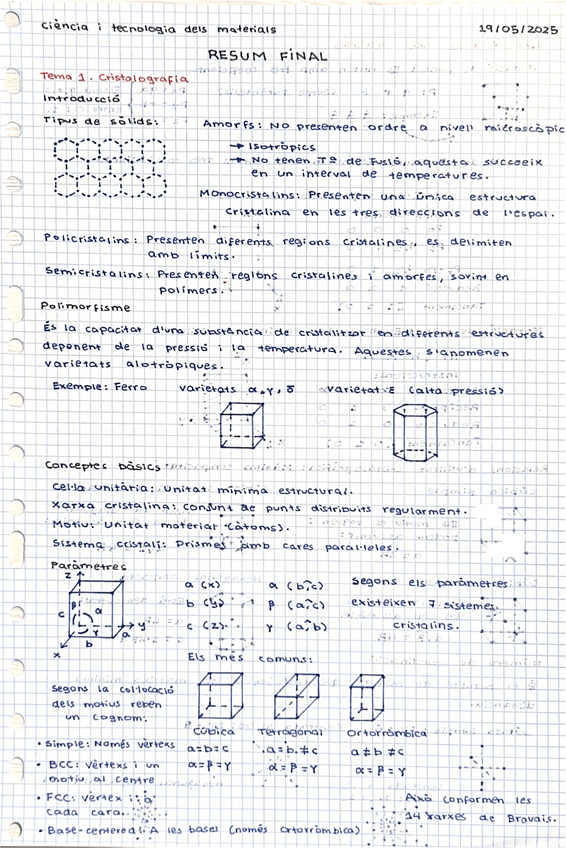 Ciència i tecnologia dels materials 19/05/2025
RESUM FINAL
Tema 1. Cristalografia
Introducció
Tipus de sòlids:
Amorfs: No presenten ordre a nivell microscòpic
→ Isotròpics
→ No tenen Tª de fusió, aquesta succeeix
en un interval de temperatures.
Monocristalins: Presenten una única estructura
cristalina en les tres direccions de l'espai.
Policristalins: Presenten diferents regions cristalines, es delimiten
amb límits.
Semicristalins: Presenten regions cristalines i amorfes, sovint en
polímers.
Polimorfisme
És la capacitat d'una substància de cristalitzar en diferents estructures
deponent de la pressió i la temperatura. Aquestes s'anomenen
varietats alotròpiques.
Exemple: Ferro varietats α, γ, δ varietat ε (alta pressió)
Conceptes bàsics
Cel·la unitària: unitat mínima estructural.
Xarxa cristalina: conjunt de punts distribuits regularment.
Motiu: Unitat material (àtoms).
Sistema cristalí: Prismes amb cares paral·leles.
Paràmetres
z
β α
c y
γ a
b
x
a (x) α (b,c)
b (y) β (a,c)
c (z) γ (a,b)
Segons els paràmetres
existeixen 7 sistemes
cristalins.
Els més comuns:
Segons la col·locació
dels motius reben
un cognom:
Cúbica Tetragonal Ortorròmbica
a=b=c a=b≠c a≠b≠c
α=β=γ α=β=γ α=β=γ
• Simple: Només vèrtexs
• BCC: vèrtexs i un
motiu al centre
• FCC: vèrtex i a
cada cara.
• Base-centered: A les bases (només ortorròmbica)
Això conformen les
14 xarxes de Bravais.